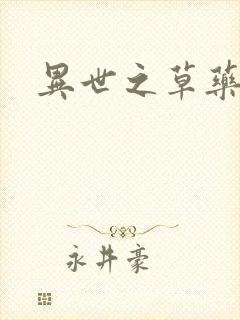 異世之草藥
永井豪